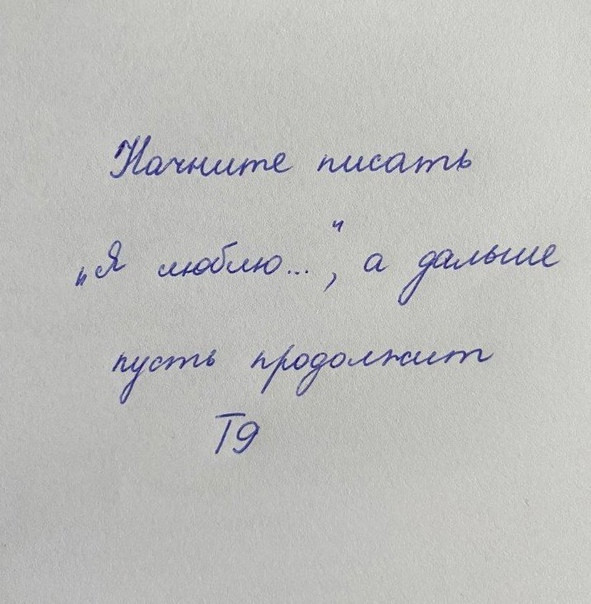 Начните писать
„Я люблю...", а дальше
пусть продолжит
Т9